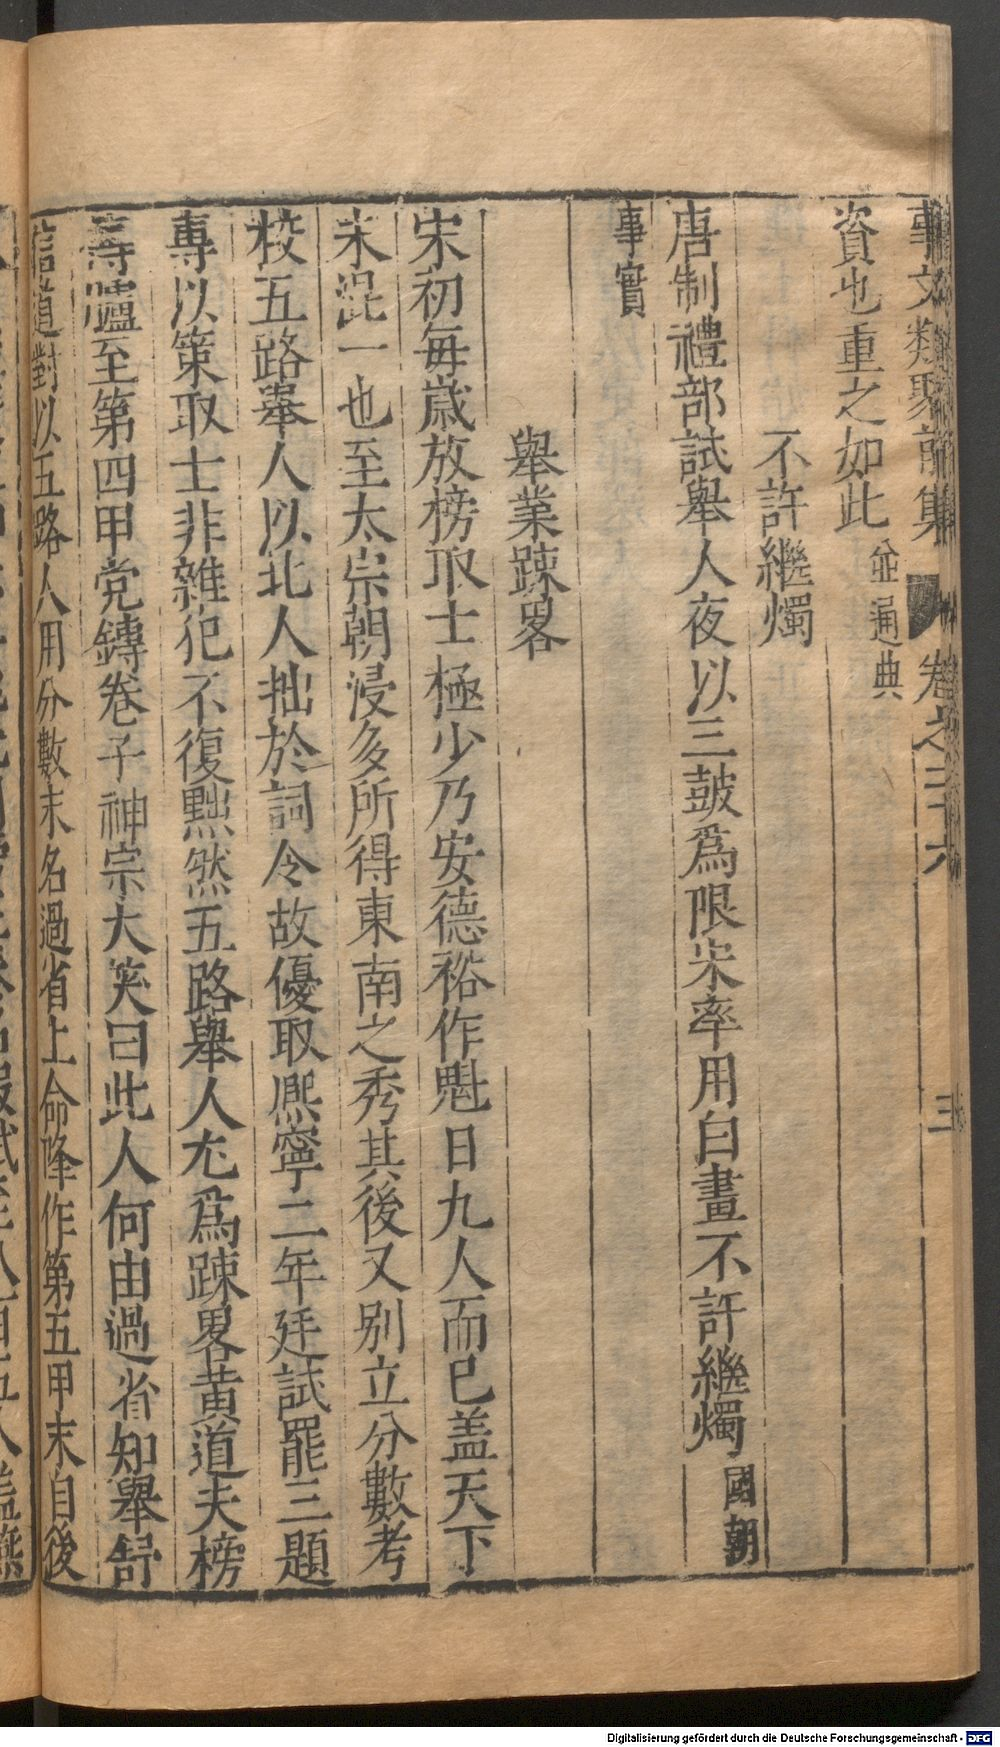 事文類聚前集 卷之二十六 三
資也重之如此並通典
不許繼燭
唐制禮部試舉人夜以三鼓爲限宋率用白晝不許繼燭國朝
事實
舉業踈畧
宋初每歲放榜取士極少乃安德裕作魁日九人而已盖天下
未混一也至太宗朝浸多所得東南之秀其後又別立分數考
校五路舉人以北人拙於詞令故優取熈寧二年廷試罷三題
專以策取士非雜犯不復黜然五路舉人尤爲踈畧黄道夫榜
傳臚至第四甲党鎛卷子神宗大笑曰此人何由過省知舉舒
信道對以五路人用分數末名過省上命降作第五甲末自後
Digitalisierung gefördert durch die Deutsche Forschungsgemeinschaft - DFG